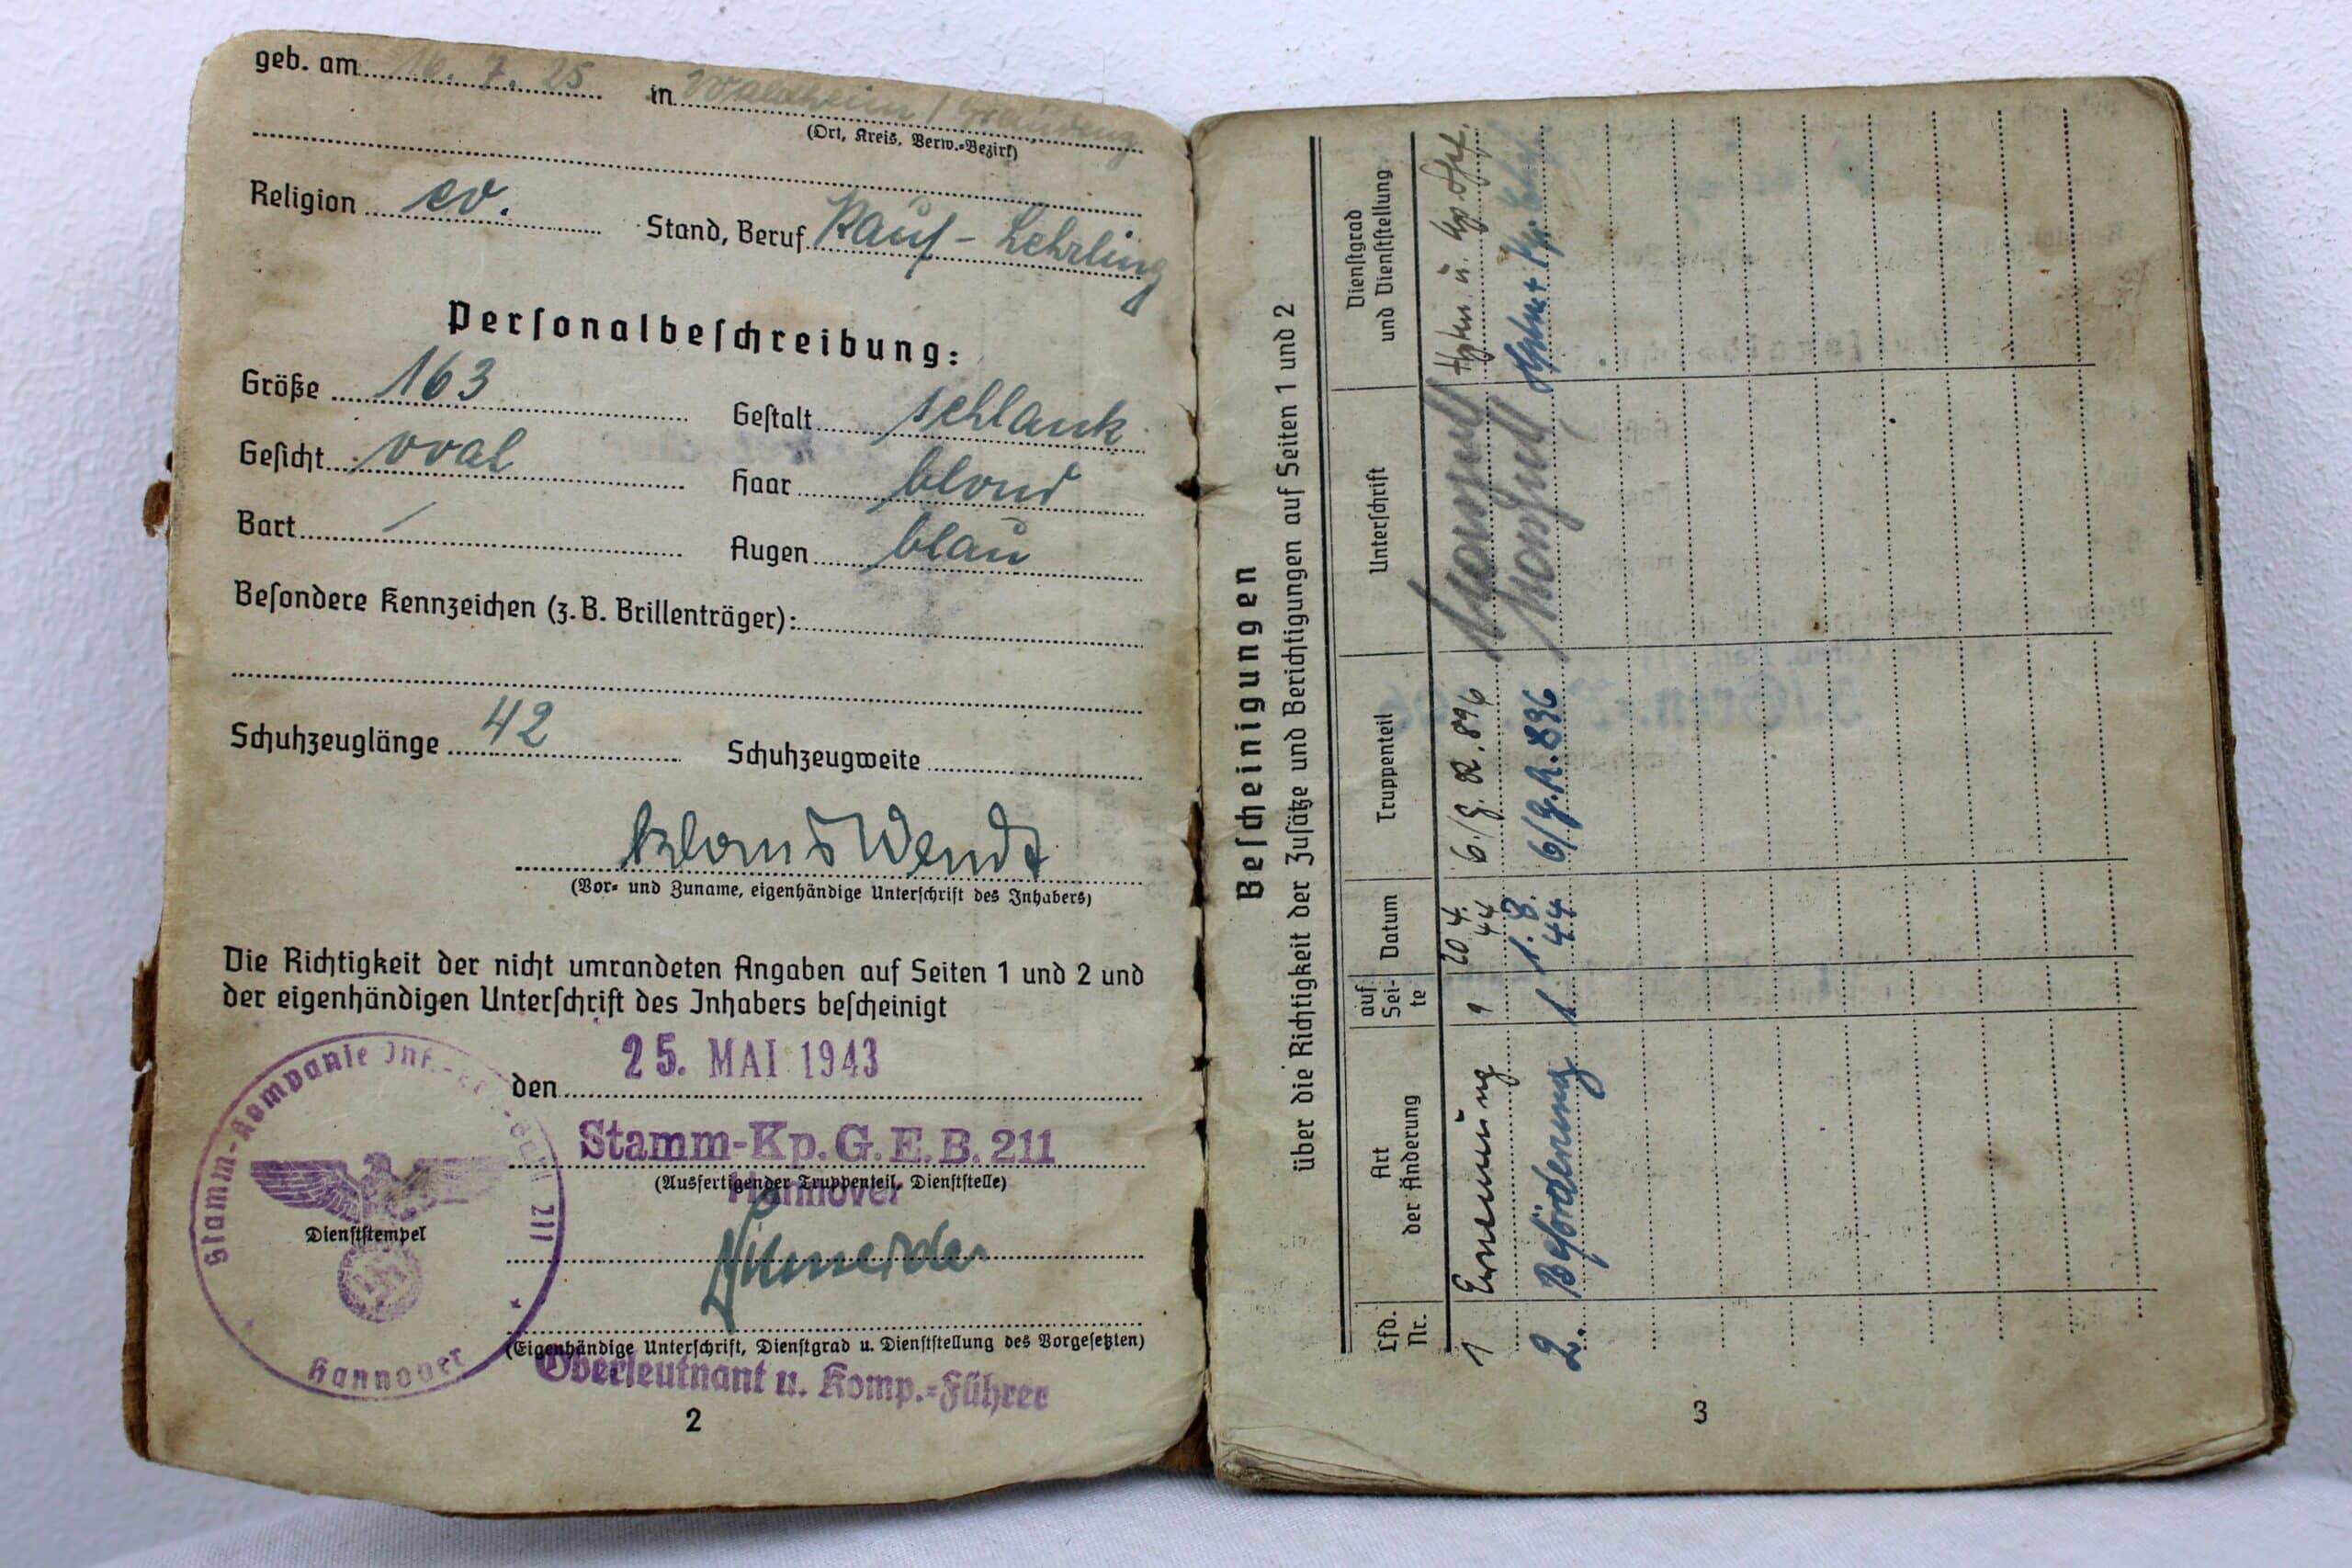 geb. am 16. 7. 25 in Waldheim / Graudenz
(Ort, Kreis, Verw.=Bezirk)
Religion ev. Stand, Beruf Kauf - Lehrling
Personalbeschreibung:
Größe 163 Gestalt schlank
Gesicht oval Haar blond
Bart / Augen blau
Besondere Kennzeichen (z. B. Brillenträger):
Schuhzeuglänge 42 Schuhzeugweite
Klaus Wendt
(Vor= und Zuname, eigenhändige Unterschrift des Inhabers)
Die Richtigkeit der nicht umrandeten Angaben auf Seiten 1 und 2 und
der eigenhändigen Unterschrift des Inhabers bescheinigt
Stamm-Kompanie Inf.- 211
Hannover
Dienststempel
den 25. MAI 1943
Stamm-Kp. G. E. B. 211
(Ausfertigender Truppenteil, Dienststelle)
Hannover
(Eigenhändige Unterschrift, Dienstgrad u. Dienststellung des Vorgesetzten)
Oberleutnant u. Komp.=Führer
2
Bescheinigungen
über die Richtigkeit der Zusätze und Berichtigungen auf Seiten 1 und 2
Lfd. Nr. Art der Änderung auf Sei-te Datum Truppenteil Unterschrift Dienstgrad und Dienststellung
1 Ernennung 1 20 4. 44 6./G. R. 896 Hptm u. Kp.
2. Beförderung 1 1. 8. 44 6/G. R. 896
3